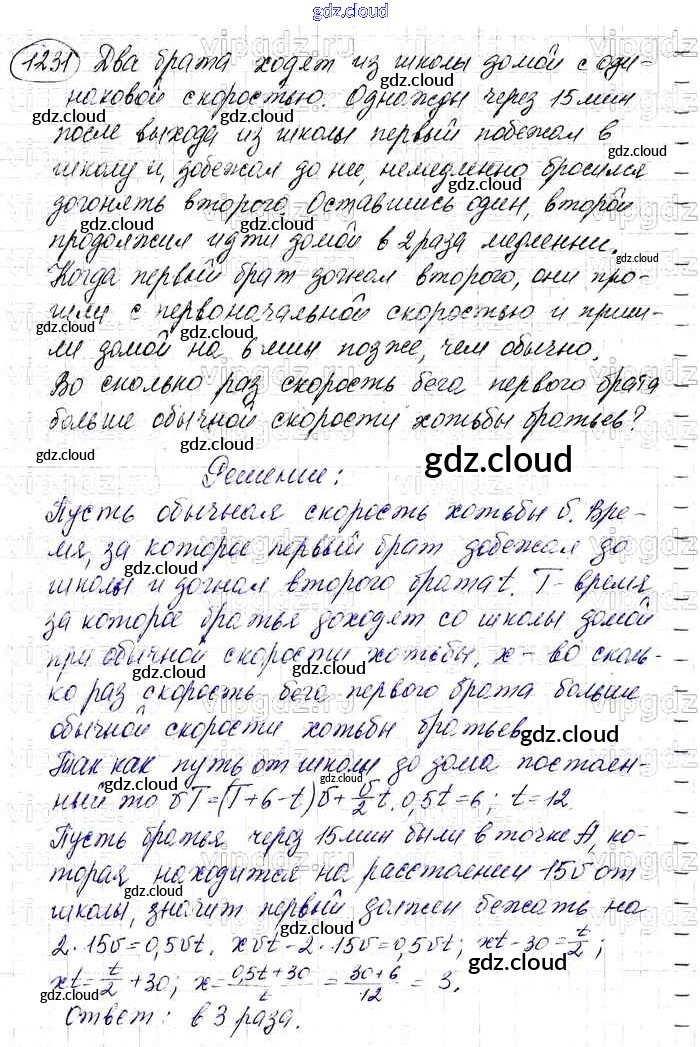 gdz.cloud
1231 Два брата ходят из школы домой с оди-
наковой скоростью. Однажды через 15 мин
после выхода из школы первый побежал в
школу и, добежал до нее, немедленно бросился
догонять второго. Оставшись один, второй
продолжил идти домой в 2 раза медленни.
Когда первый брат догнал второго, они про-
шли с первоначальной скоростью и приш-
ли домой на 6 мин позже, чем обычно.
Во сколько раз скорость бега первого брата
больше обычной скорости хотьбы братьев?
gdz.cloud
Решение:
Пусть обычная скорость хотьбы б. Вре-
мя, за которое первый брат добежал до
школы и догнал второго брата t. T - время,
за которое братья доходят со школы домой
при обычной скорости хотьбы, x - во сколь-
ко раз скорость бега первого брата больше
обычной скорости хотьбы братьев.
Так как путь от школы до дома постоен-
ный то бT=(T+6-t)б+б/2 t. 0,5t=6; t=12.
Пусть братья через 15 мин были в точке A, ко-
торая находится на расстоянии 15υ от
школы, значит первый должен бежать на
2·15υ=0,5υt. xυt-2·15υ=0,5υt; xt-30=t/2;
xt=t/2+30; x=(0,5t+30)/t=(30+6)/12=3.
Ответ: в 3 раза.